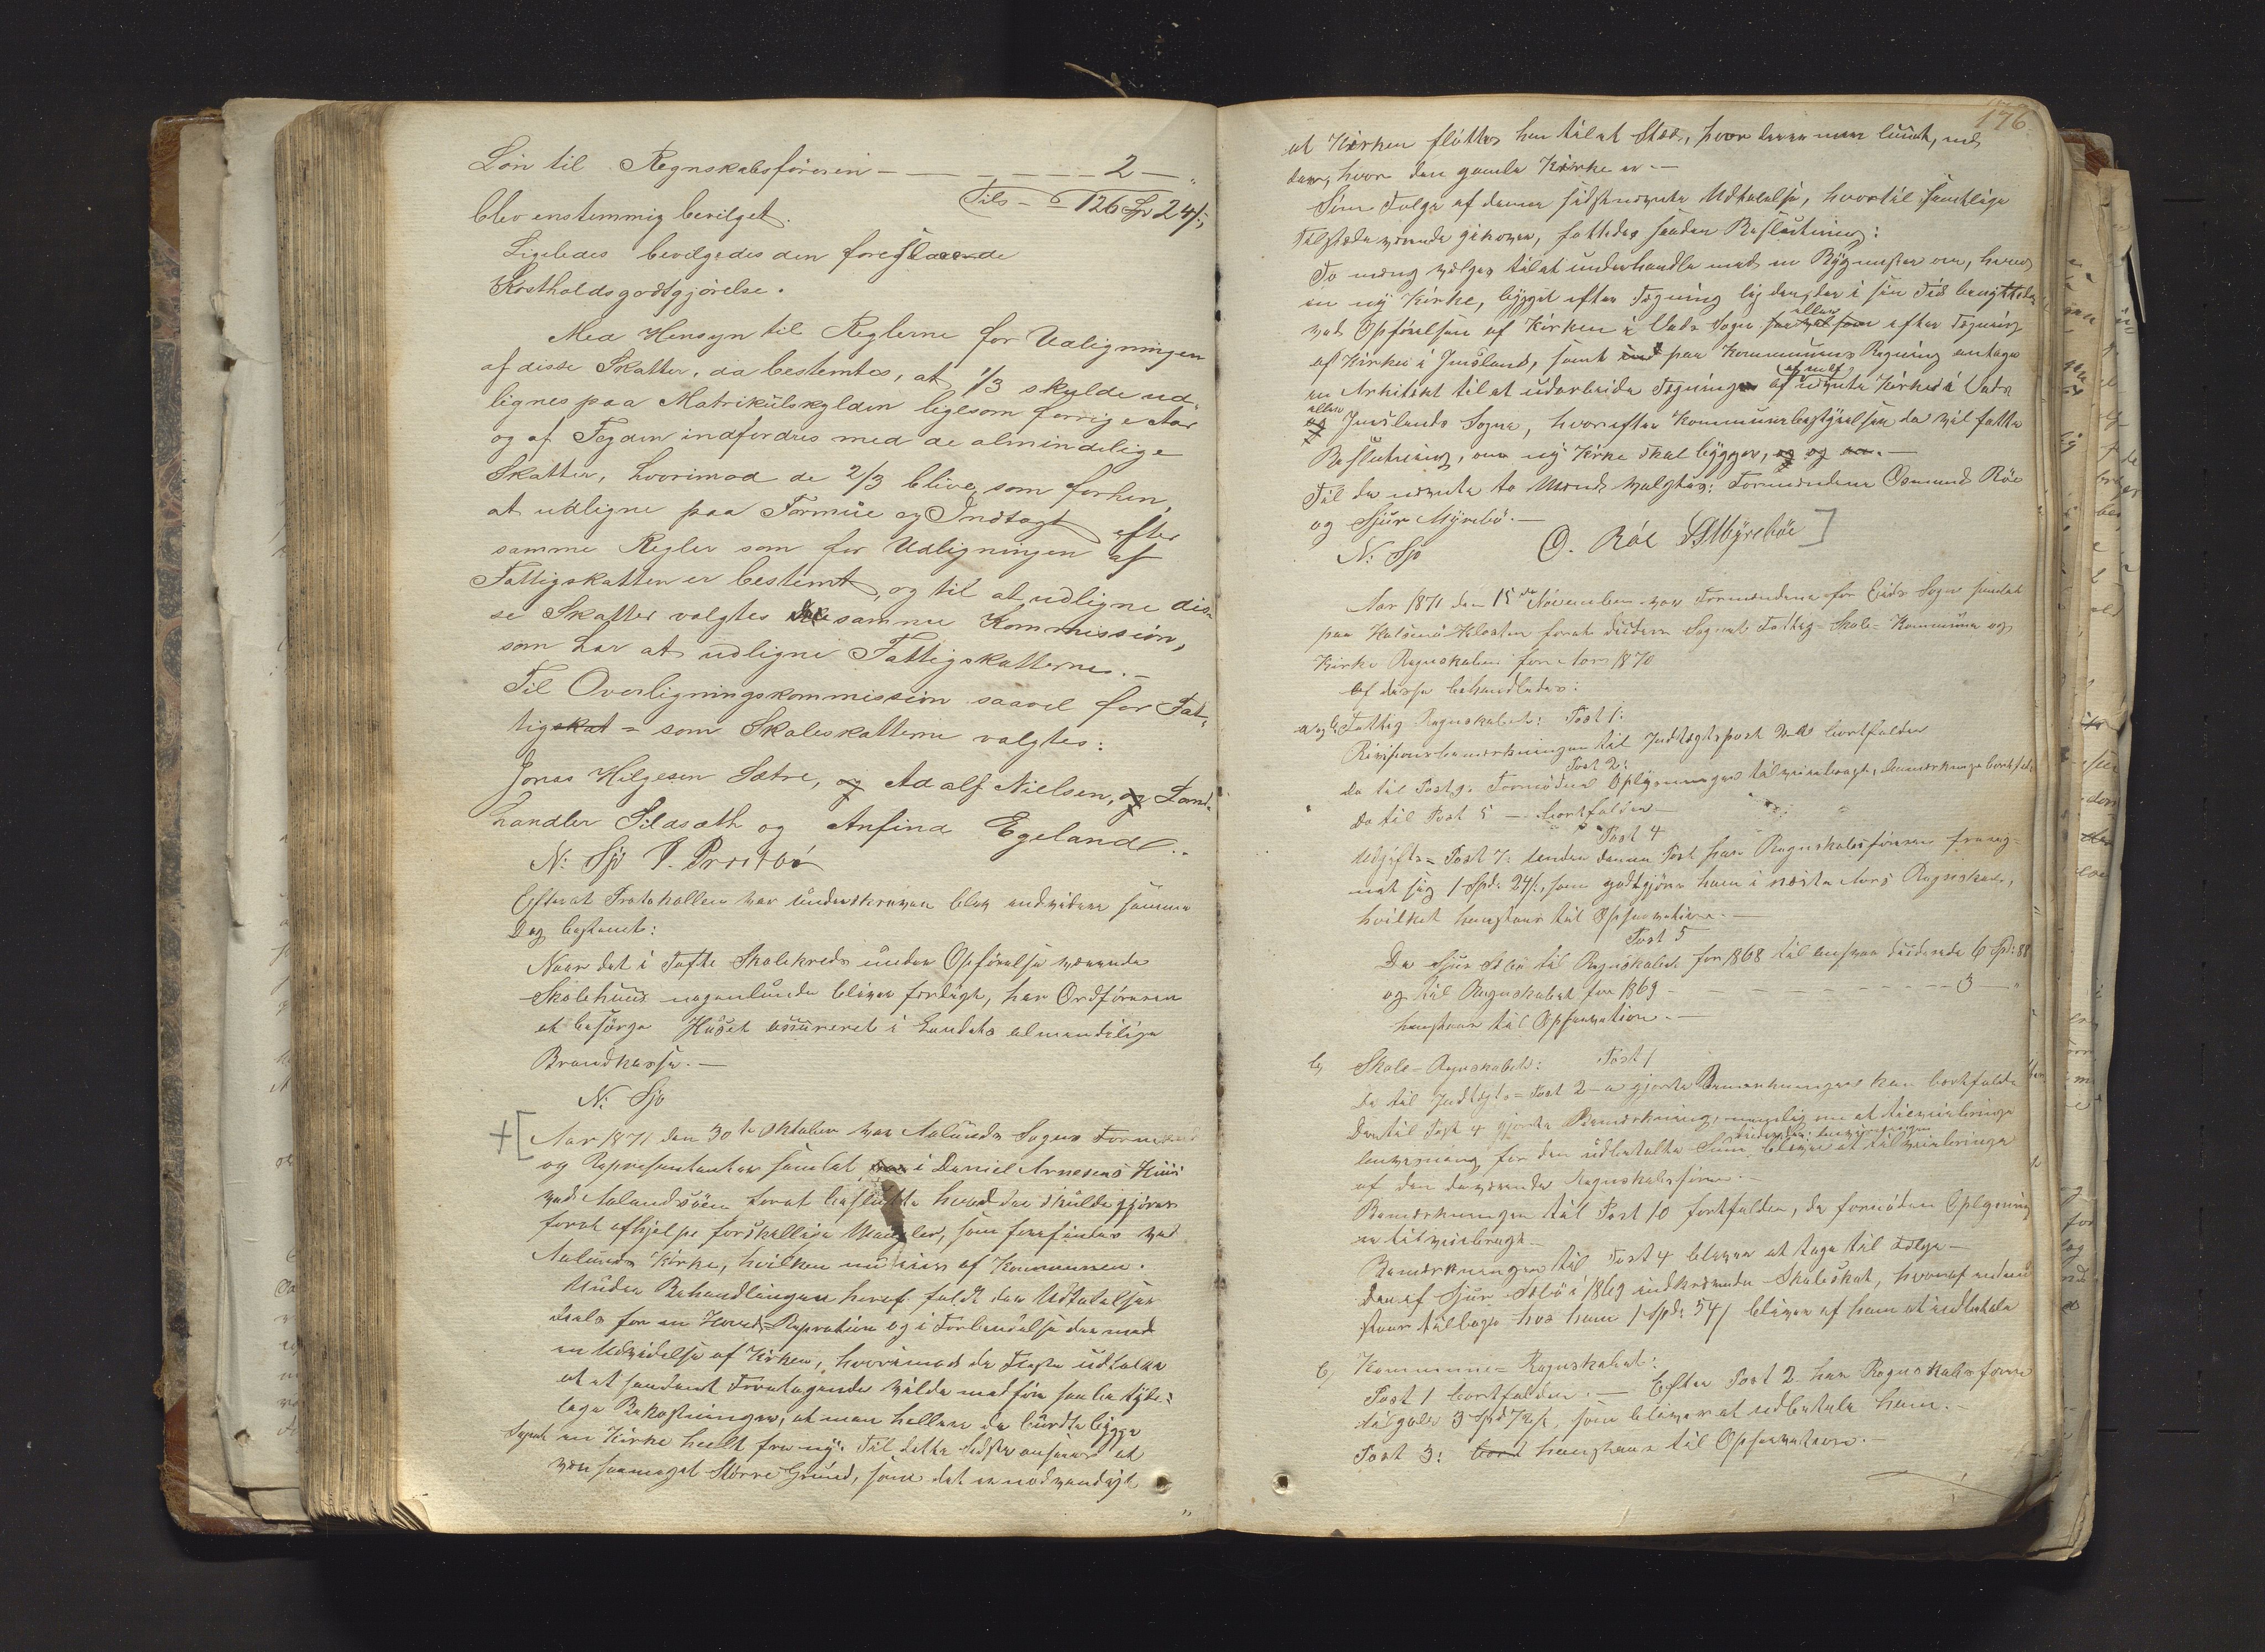 Løn til Regnskabsføreren - - - - - - 2 - "
Tils - - 126 Sp 24 s;
blev enstemmig bevilget.
Ligeledes bevilgedes den foreslaaende
Kostholdsgodtgjørelse.
Med Hensyn til Reglerne for Udligningen
af disse Skatter, da bestemtes, at 1/3 skulde ud-
lignes paa Matrikulskylden ligesom forrige Aar
og af Fogden indfordres med de almindelige
Skatter, hvorimod de 2/3 blive, som forhen,
at udligne paa Formue og Indtægt efter
samme Regler som for Udligningen af
Fattigskatten er bestemt, og til at udligne dis-
se Skatter valgtes samme Kommission,
som har at udligne Fattigskatterne. -
Til Overligningskommission saavel for Fat-
tigskat = som Skoleskatterne valgtes:
Jonas Helgesen Sætre, og Adalf Nielsen, og Land-
handler Sildasæth og Anfind Egeland. -
N: Sjo
Efterat Protokollen var underskreven blev endvidere samme
Dag bestemt:
Naar det i Tofte Skolekreds under Opførelse værende
Skolehuus nogenlunde bliver færdigt, har Ordføreren
at besørge Huset assureret i Landets almindelige
Brandkasse. -
N: Sjo
Aar 1871 den 30te Oktober var Aalunds Sogns Formænd
og Repræsentanter samlet i Daniel Arnesens Huus
ved Aalandsøen forat beslutte hvad der skulde gjøres
forat afhjelpe forskjellige Mangler, som forefindes ved
Aalunds Kirke, hvilken nu eies af Kommunen.
Under Behandlingen heraf faldt der Udtalelser
deels for en Hoved-Repration og i Forbindelse dermed
en Udvidelse af Kirken, hvorimod de Fleste udtalte
at et saadant Foretagende vilde medføre saa betyde-
lige Bekostninger, at man hellere da burde bygge
Sognet en Kirke heelt fra ny. Til dette Sidste ansaaes at
være saameget Større Grund, som det er nødvendigt
176.
at Kirken flyttes hen til et Sted, hvor
der, hvor den gamle Kirke er. -
Som Følge af denne sidstnævnte Udtalelse, hvortil samtlige
Tilstedeværende, fattedes saadan Beslutning:
To mænd vælges til at underhandle med en Bygmester om, hvad
en ny Kirke, bygget efter Tegning lig den, der i sin Tid benyttedes
ved Opførelsen af Kirken i Vads Sogn saavel som eller efter Tegning
af Kirken i Imsland, samt paa Kommunens Regning antage
en Arkitekt til at udarbeide Tegninger af nævnte Kirke i Vads
og eller Imslands Sogne, hvorefter Kommunebestyrelsen da vil fatte
Beslutning, om ny Kirke skal bygges, og og -
Til de nævnte to Mænd valgtes: Formændene Osmund Røe
og Sjur Myrebø. -
N: Sjo O. Røe S Myrebøe ]
Aar 1871 den 15de November var Formændene for Eids Sogn samlet
paa Halsnø Kloster forat decidere Sognets Fattig- Skole- Kommune og
Kirke Regnskaber for Aar 1870
Af disse behandledes:
a) Fattig Regnskabet: Post 1:
Revisionsbemærkningen til Indtægtspost bortfalder
Post 2:
Da til Post fornødne Oplysninger tilveiebragt, Bemærkningen bortfalder
Do til Post 5 - bortfalder -
Post 4
Udgifts = Post 7: Under denne Post har Regnskabsføreren
sig 1 Spd: 24 s:, som godtgjøres ham i næste Aars Regnskab,
hvilket henstaar til Observation. -
Post 5
De Sjur til Regnskabet for 1868 til ansvar deciderede 6 Spd: 88
og til Regnskabet for 1869 - - - - - - - - 3 - "
henstaar til Opservation. -
b) Skole-Regnskabet: Post 1
De til Indtægts = Post 2-a gjorte Bemærkninger kan bortfalde
Den til Post 4 gjorte Bemærkning, nemlig om at tilveiebringe
for den udbetalte Sum bliver at tilveiebringe
af den daværende Regnskabsfører. -
Bemærkningen til Post 10 bortfalder, da fornøden Oplysning
er tilveiebragt -
Bemærkningen til Post 4 bliver at tage til Følge -
Den af Sjur i 1869 indkrævede Skoleskat, hvoraf endnu
staar tilbage hos ham 1 Spd: 54 s bliver af ham at indbetale
c) Kommune = Regnskabet:
Post 1 bortfalder. - Efter Post 2 har Regnskabsføreren
tilgode 3 Spd 72 s, som bliver at udbetale ham. -
Post 3: bort henstaar til Opservation. -